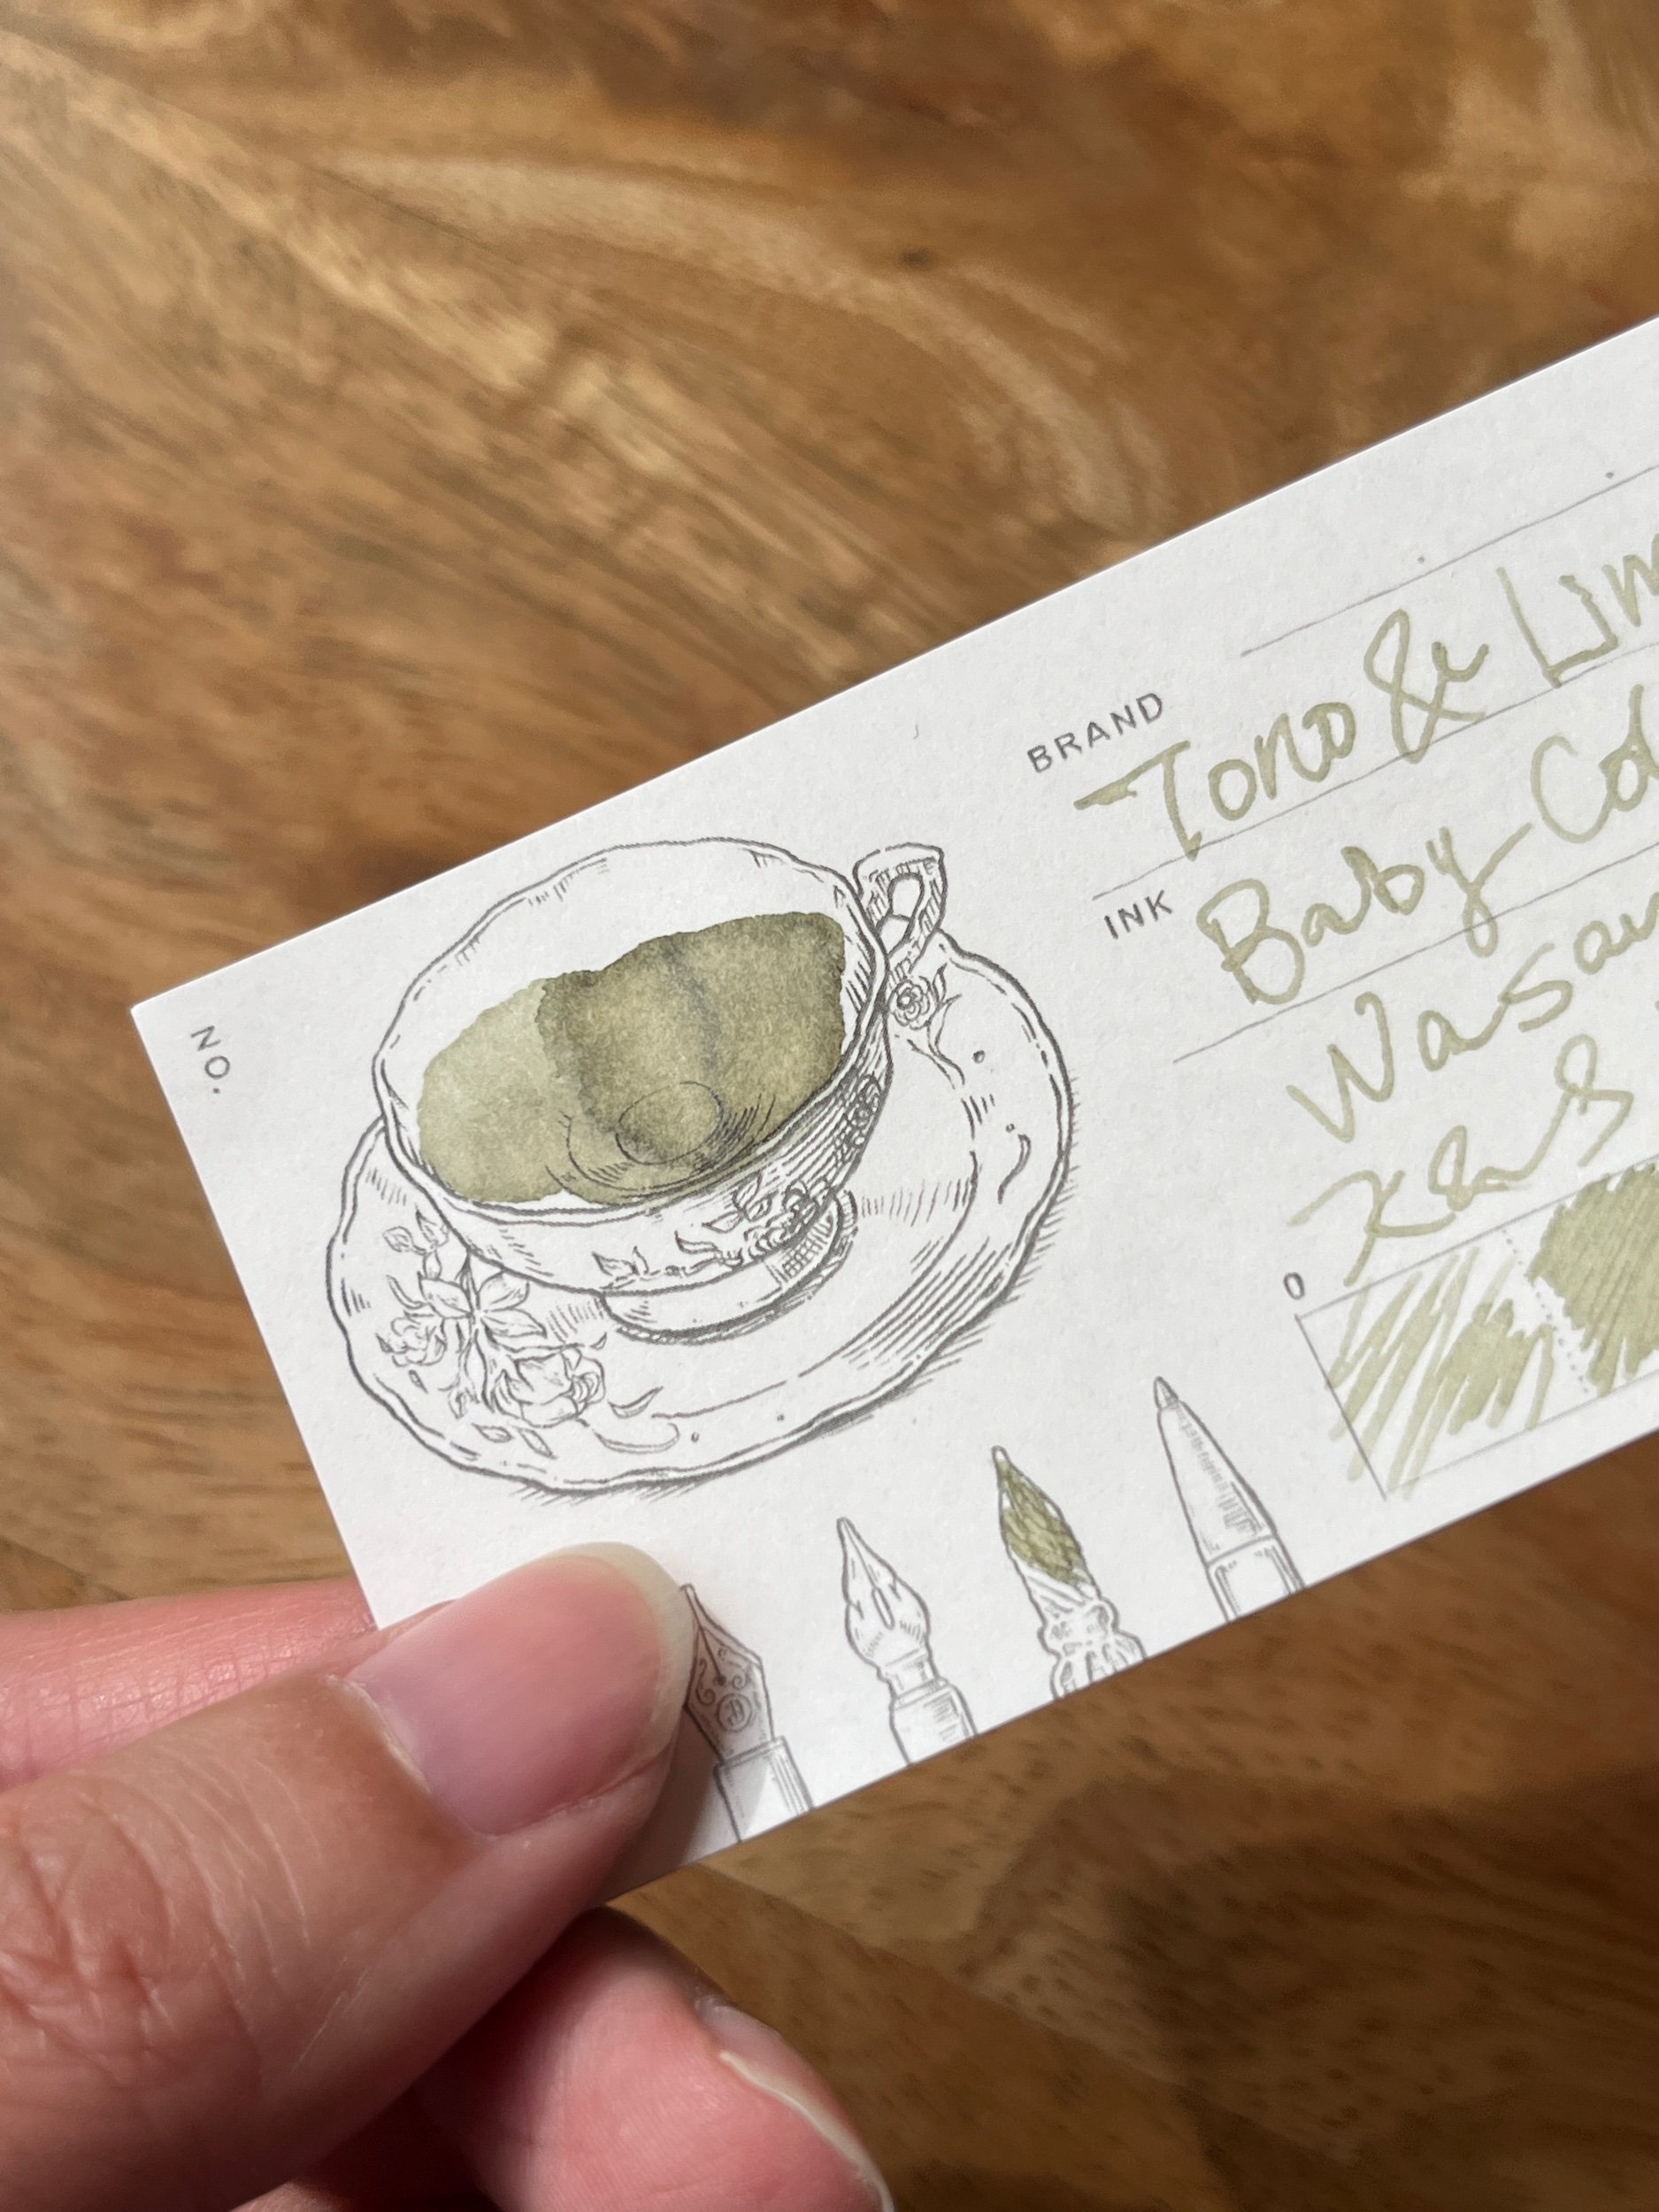 BRAND
Tono & Lim
INK
Baby Col
Wasau
NO.
0